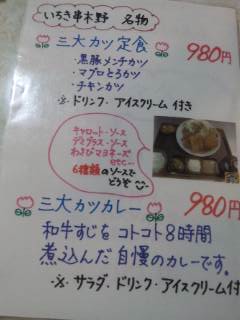 いちき串木野 名物
三大カツ定食 980円
・黒豚メンチカツ
・マグロとろカツ
・チキンカツ
※ドリンク・アイスクリーム付き
キャロット・ソース
デミグラス・ソース
わさびマヨネーズ
etc…
6種類のソースで
どうぞ
三大カツカレー 980円
和牛すじをコトコト8時間
煮込んだ自慢のカレーです。
※サラダ・ドリンク・アイスクリーム付